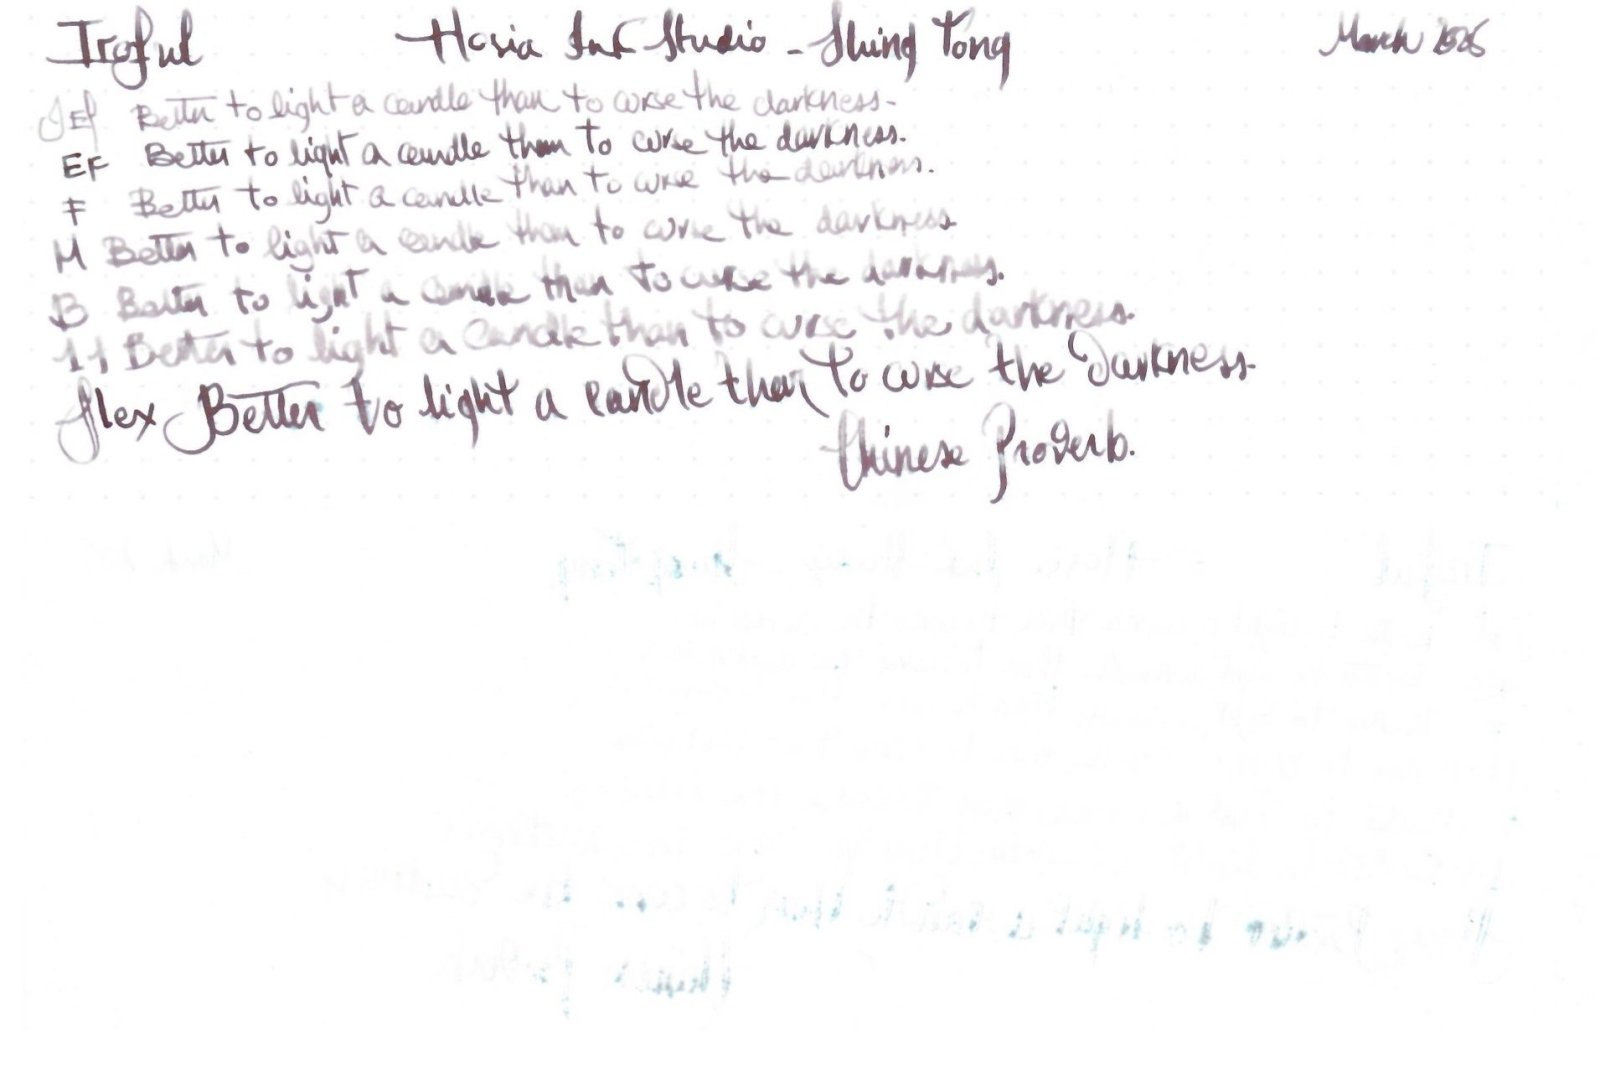 Iroful Hosia Ink Studio - Shing Tong March 2026
JEF Better to light a candle than to curse the darkness.
EF Better to light a candle than to curse the darkness.
F Better to light a candle than to curse the darkness.
M Better to light a candle than to curse the darkness
B Better to light a candle than to curse the darkness.
1,1 Better to light a candle than to curse the darkness.
flex Better to light a candle than to curse the Darkness.
Chinese Proverb.